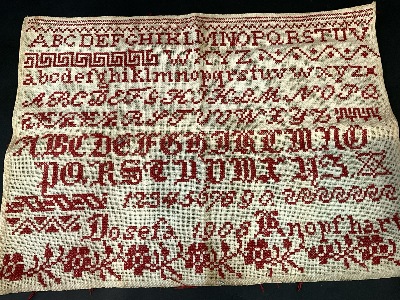 ABCDEFGHIKLMNOPQRSTUV
WXYZ
abcdefghiklmnopqrstuvwxyz
ABCDEFGHIKLMNOPQ
RSTUVWXYZ
ABCDEFGHIKLMNO
PQRSTUVWXYZ
1234567890
Josefa 1908 Knopfhart